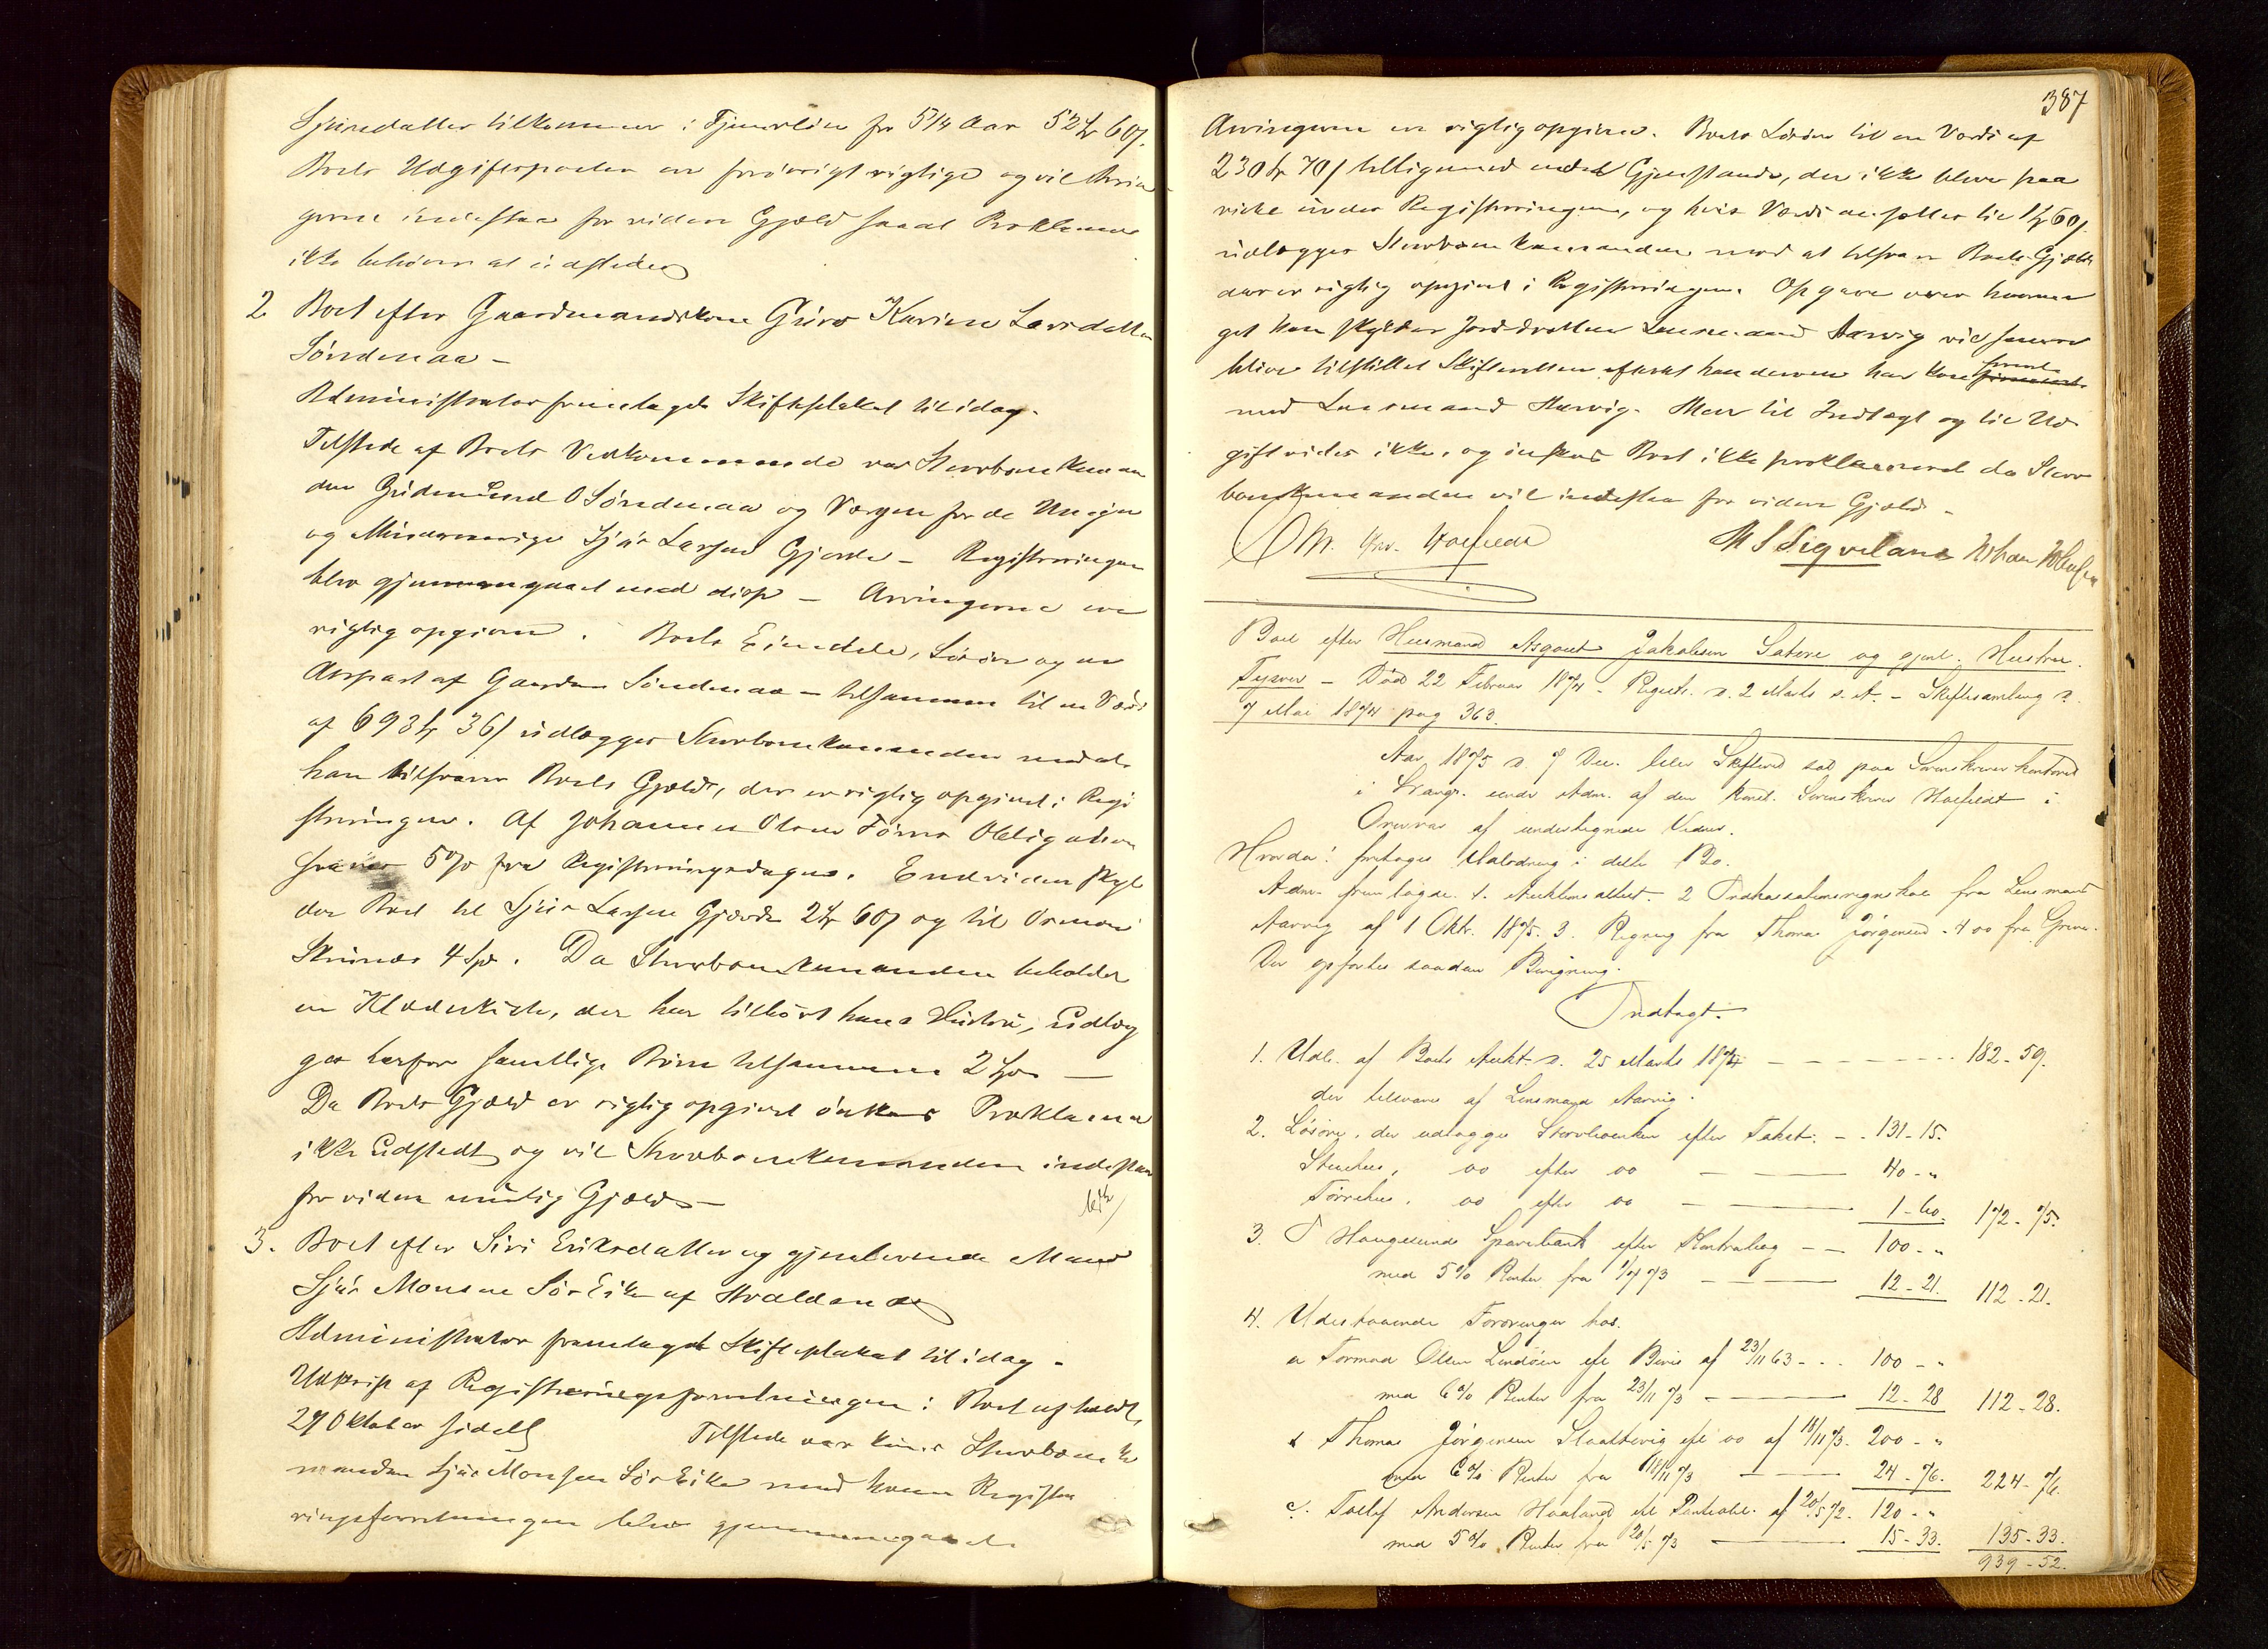 Sjursdatter tilkommer i Tjenerløn for 5 1/4 Aar 52 Kr 60 ſ.
Boets Udgiftsposter er forøvrigt rigtige og vil Arvin
gerne indestaa for videre Gjæld saaat Proklama
ikke behøver at udstedes
2. Boet efter Gaardmandskone Guro Karine Larsdatter
Søndenaa –
Administrator fremlagde Skifteplakat til idag.
Tilstede af Boets Vedkommende var Stervboenkeman
den Gudmund O Søndenaa og Værgen for de Umyn
og Mindreaarige Sjur Larsen Gjerde – Registreringen
blev gjennemgaaet med disse – Arvingerne ere
rigtig opgivne. Boets Eiendele, Løsøre og en
Aarpart af Gaarden Søndenaa – tilsammen til en Værdi
af 693 Kr 36 ſ udlægges Stervboenkemanden mod at
han tilsvarer Boets Gjæld, der er rigtig opgivet i Regi
streringen. Af Johannes Olsen Obligation
svares 5% fra Registreringsdagen. Endvidere skyl
der Boet til Sjur Larsen Gjerde 2 Kr 60 ſ og til
4 Spd. Da Stervboenkemanden beholder
en Klædeskiste, der har tilhørt hans Hustru, udlæg
ges herfor samtlige Børn tilsammen 2 Kr –
Da Boets Gjæld er rigtig opgivet ønskes Proklama
ikke udstedt og vil Stervboenkemanden indestaa
for videre mulig Gjæld –
3. Boet efter Siri Eriksdatter og gjenlevende Mand
Sjur Monsen Sør Eike af
Administrator fremlagde Skifteplakat til idag –
Udskrift af Registreringsforretningen i Boet afholdt
27 Oktober sidstl Tilstede var kun Stervboenke
manden Sjur Monsen Sør Eike med hvem Registre
ringsforretningen blev gjennemgaaet.
387
Arvingerne er rigtig opgivne. Boets Løsøre til en Værdi af
230 Kr 70 ſ tilligemed endel Gjenstande, der ikke bleve paa
viste under Registreringen, og hvis Værdi ansættes til 1 Kr 60 ſ.
udlægges Stervboenkemanden mod at tilsvare Boets Gjæld
der er rigtig opgivet i Registreringen. Opgave over hvormeget
get han skylder Jorddrotten Lensmand Aarvig vil senere
blive tilstillet Skifteretten efterat han derom har konf
med Lensmand Aarvig. Mere til Indtægt og til Ud
gift vides ikke, og ønskes Boet ikke proklameret da Sterv
boenkemanden vil indestaa for videre Gjæld –
M S Sigveland Johan
Boet efter Husmand Asgaut Jakobsen Satere og gjenl. Hustru.
Tysvær – Død 22 Februar 1874 – Registr. d. 2 Marts s. A. – Skiftesamling d.
7 Mai 1874 pag 363.
Aar 1875 d. 7 Dec. blev Skifteret sat paa Sorenskriverkontoret
i Stavgr. under Adm. af den konst. Sorenskriver Hoefeldt i
Overvær af undertegnede Vidner.
Hvorda: foretoges Udlodning i dette Bo.
Adm. fremlagde. 1. Auktionsattest. 2 Indkassationsregnskab fra Lensmand
Aarvig af 1 Okt. 1875. 3. Regning fra Thomas Jørgensen – 4 do fra
Der opførtes saadan Beregning.
Indtægt.
1. Udb. af Boets Aukt. d. 25 Marts 1874 – – – 182 – 59.
der tilsvares af Lensmand Aarvig.
2. Løsøre, der udlægges Stervboenken efter Takst: – – 131 – 15.
Stuehus, do efter do – – 40 – „
Tørrehus, do efter do – – 1 – 60. 172 – 75.
3. I Haugesunds Sparebank efter Kontrabog – – 100 – „
med 5% Renter fra 1/7 73 – – 12 – 21. 112 – 21.
4. Udestaaende Fordringer hos.
a Tormod Olsen Lindøen eft Bevis af 23/11 63 – . . 100 – „
med 6% Renter fra 23/11 73 – – 12 – 28 112 – 28.
b Thomas Jørgensen Slaattevig eft do af 18/11 73. 200 – „
med 6% Renter fra 18/11 73 – – 24 – 76. 224 – 76.
c. Tollef Andersen Haaland eft Panteobl. af 20/5 72. 120 – „
med 5% Renter fra 20/5 73 – 15 – 33. 135 – 33.
939 – 52.